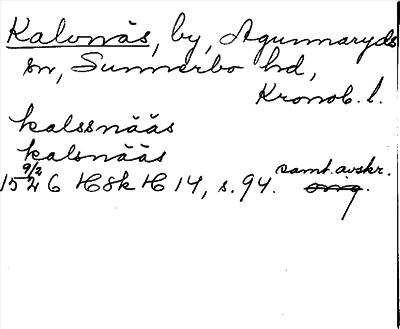 Kalvnäs, by, Agunnaryds
sn, Sunnerbo hd,
Kronob. l.
kalssnääs
kalsnääs
samt. avskr.
15 9/2 26 HSkH 14, s. 94. orig.